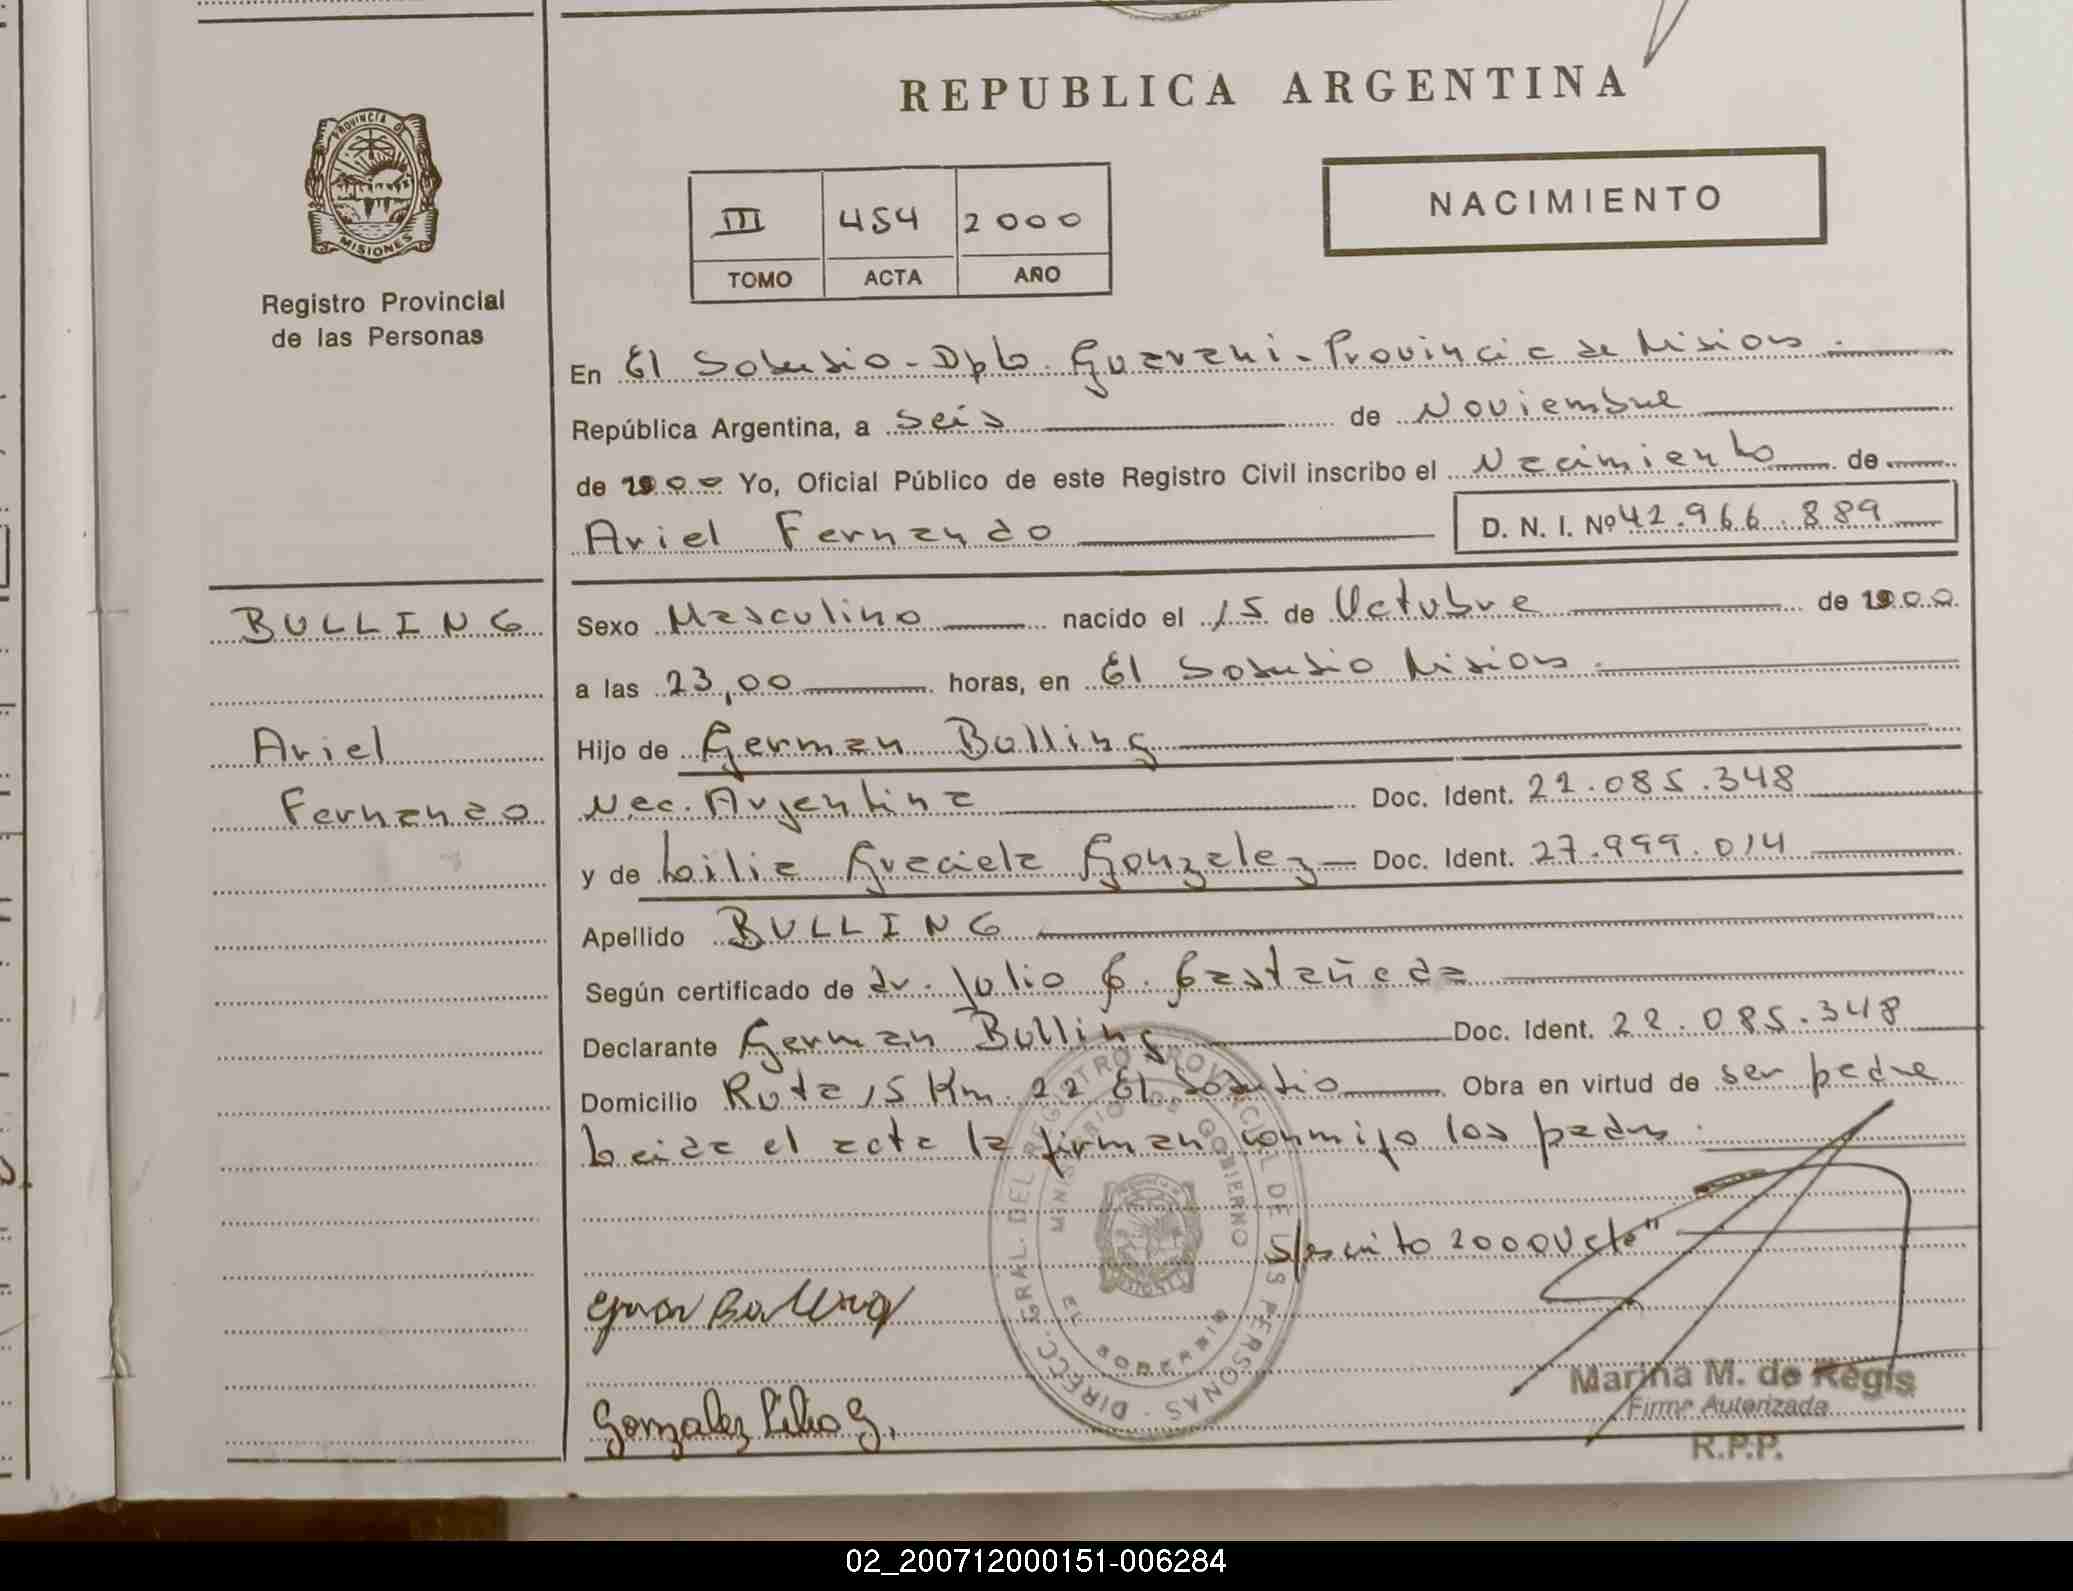 REPUBLICA ARGENTINA
PROVINCIA DE
MISIONES
Registro Provincial
de las Personas
III 454 2000
TOMO ACTA AÑO
NACIMIENTO
En El Soberbio - Dpto. Guarani - Provincia de Misiones
República Argentina, a seis de Noviembre
de 2000 Yo, Oficial Público de este Registro Civil inscribo el Nacimiento de
Ariel Fernando D. N. I. Nº 42.966.889
BULLING
Ariel
Fernando
Sexo Masculino nacido el 15 de Octubre de 2000
a las 23,00 horas, en El Soberbio Misiones
Hijo de German Bulling
Nac. Argentina Doc. Ident. 22.085.348
y de Lilia Graciela Gonzalez Doc. Ident. 27.999.014
Apellido BULLING
Según certificado de dr. Julio C. Castañeda
Declarante German Bulling Doc. Ident. 22.085.348
Domicilio Ruta 15 Km. 22 El Soberbio Obra en virtud de ser padre
Leida el acta la firman conmigo los padres.
S/escrito 2000 Vale"
DIRECC. GRAL. DEL REGISTRO PROVINCIAL DE LAS PERSONAS
MINISTERIO DE GOBIERNO
EL SOBERBIO
Bulling
Gonzalez Lilia G.
Marina M. de Regis
Firma Autorizada
R.P.P.
02_200712000151-006284